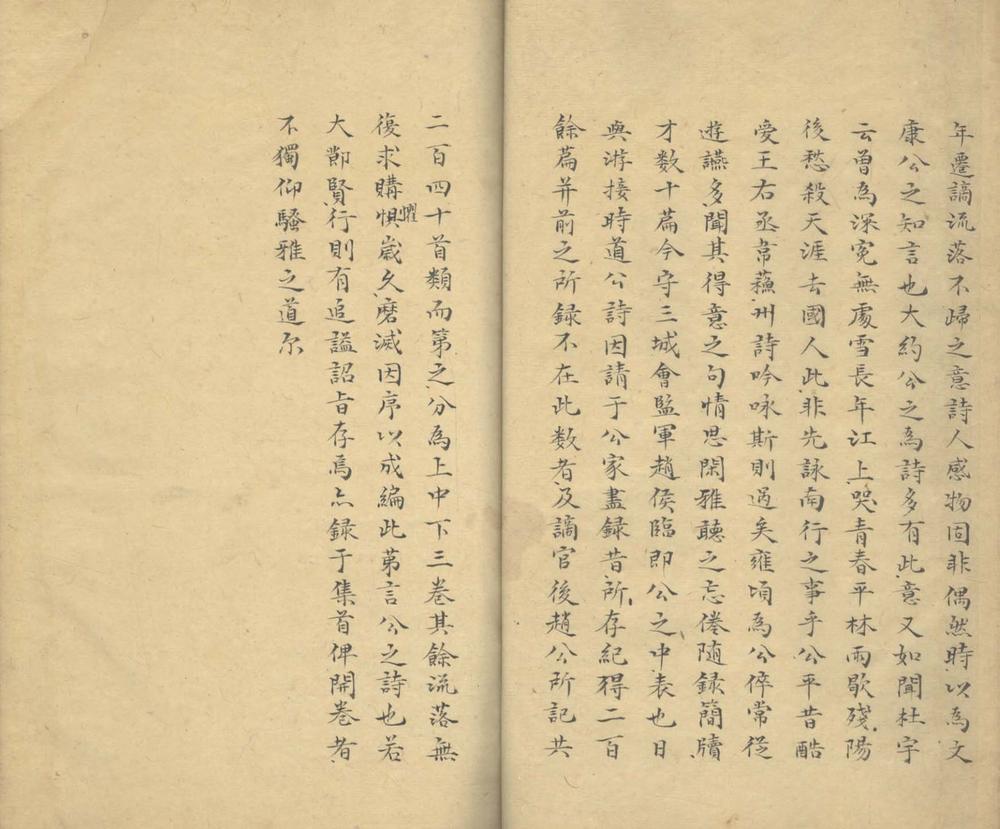 年遷謫流落不歸之意詩人感物固非偶然時以為文
康公之知言也大約公之為詩多有此意又如聞杜宇
云曽為深寃無處雪長年江上哭青春平林雨歇殘陽
後愁殺天涯去國人此非先詠南行之事乎公平昔酷
愛王右丞韋蘇州詩吟咏斯則過矣雍頃為公倅常從
遊讌多聞其得意之句情思閑雅聽之忘倦随録簡牘
才数十篇今守三城會監軍趙侯臨即公之中表也日
與游接時道公詩因請于公家盡録昔所存紀得二百
餘篇并前之所録不在此数者及謫官後趙公所記共
二百四十首類而第之分為上中下三巻其餘流落無
復求購惧懼歲久磨滅因序以成編此苐言公之詩也若
大鄖賢行則有追謚詔旨存焉亦録于集首俾開巻者
不獨仰騷雅之道尔